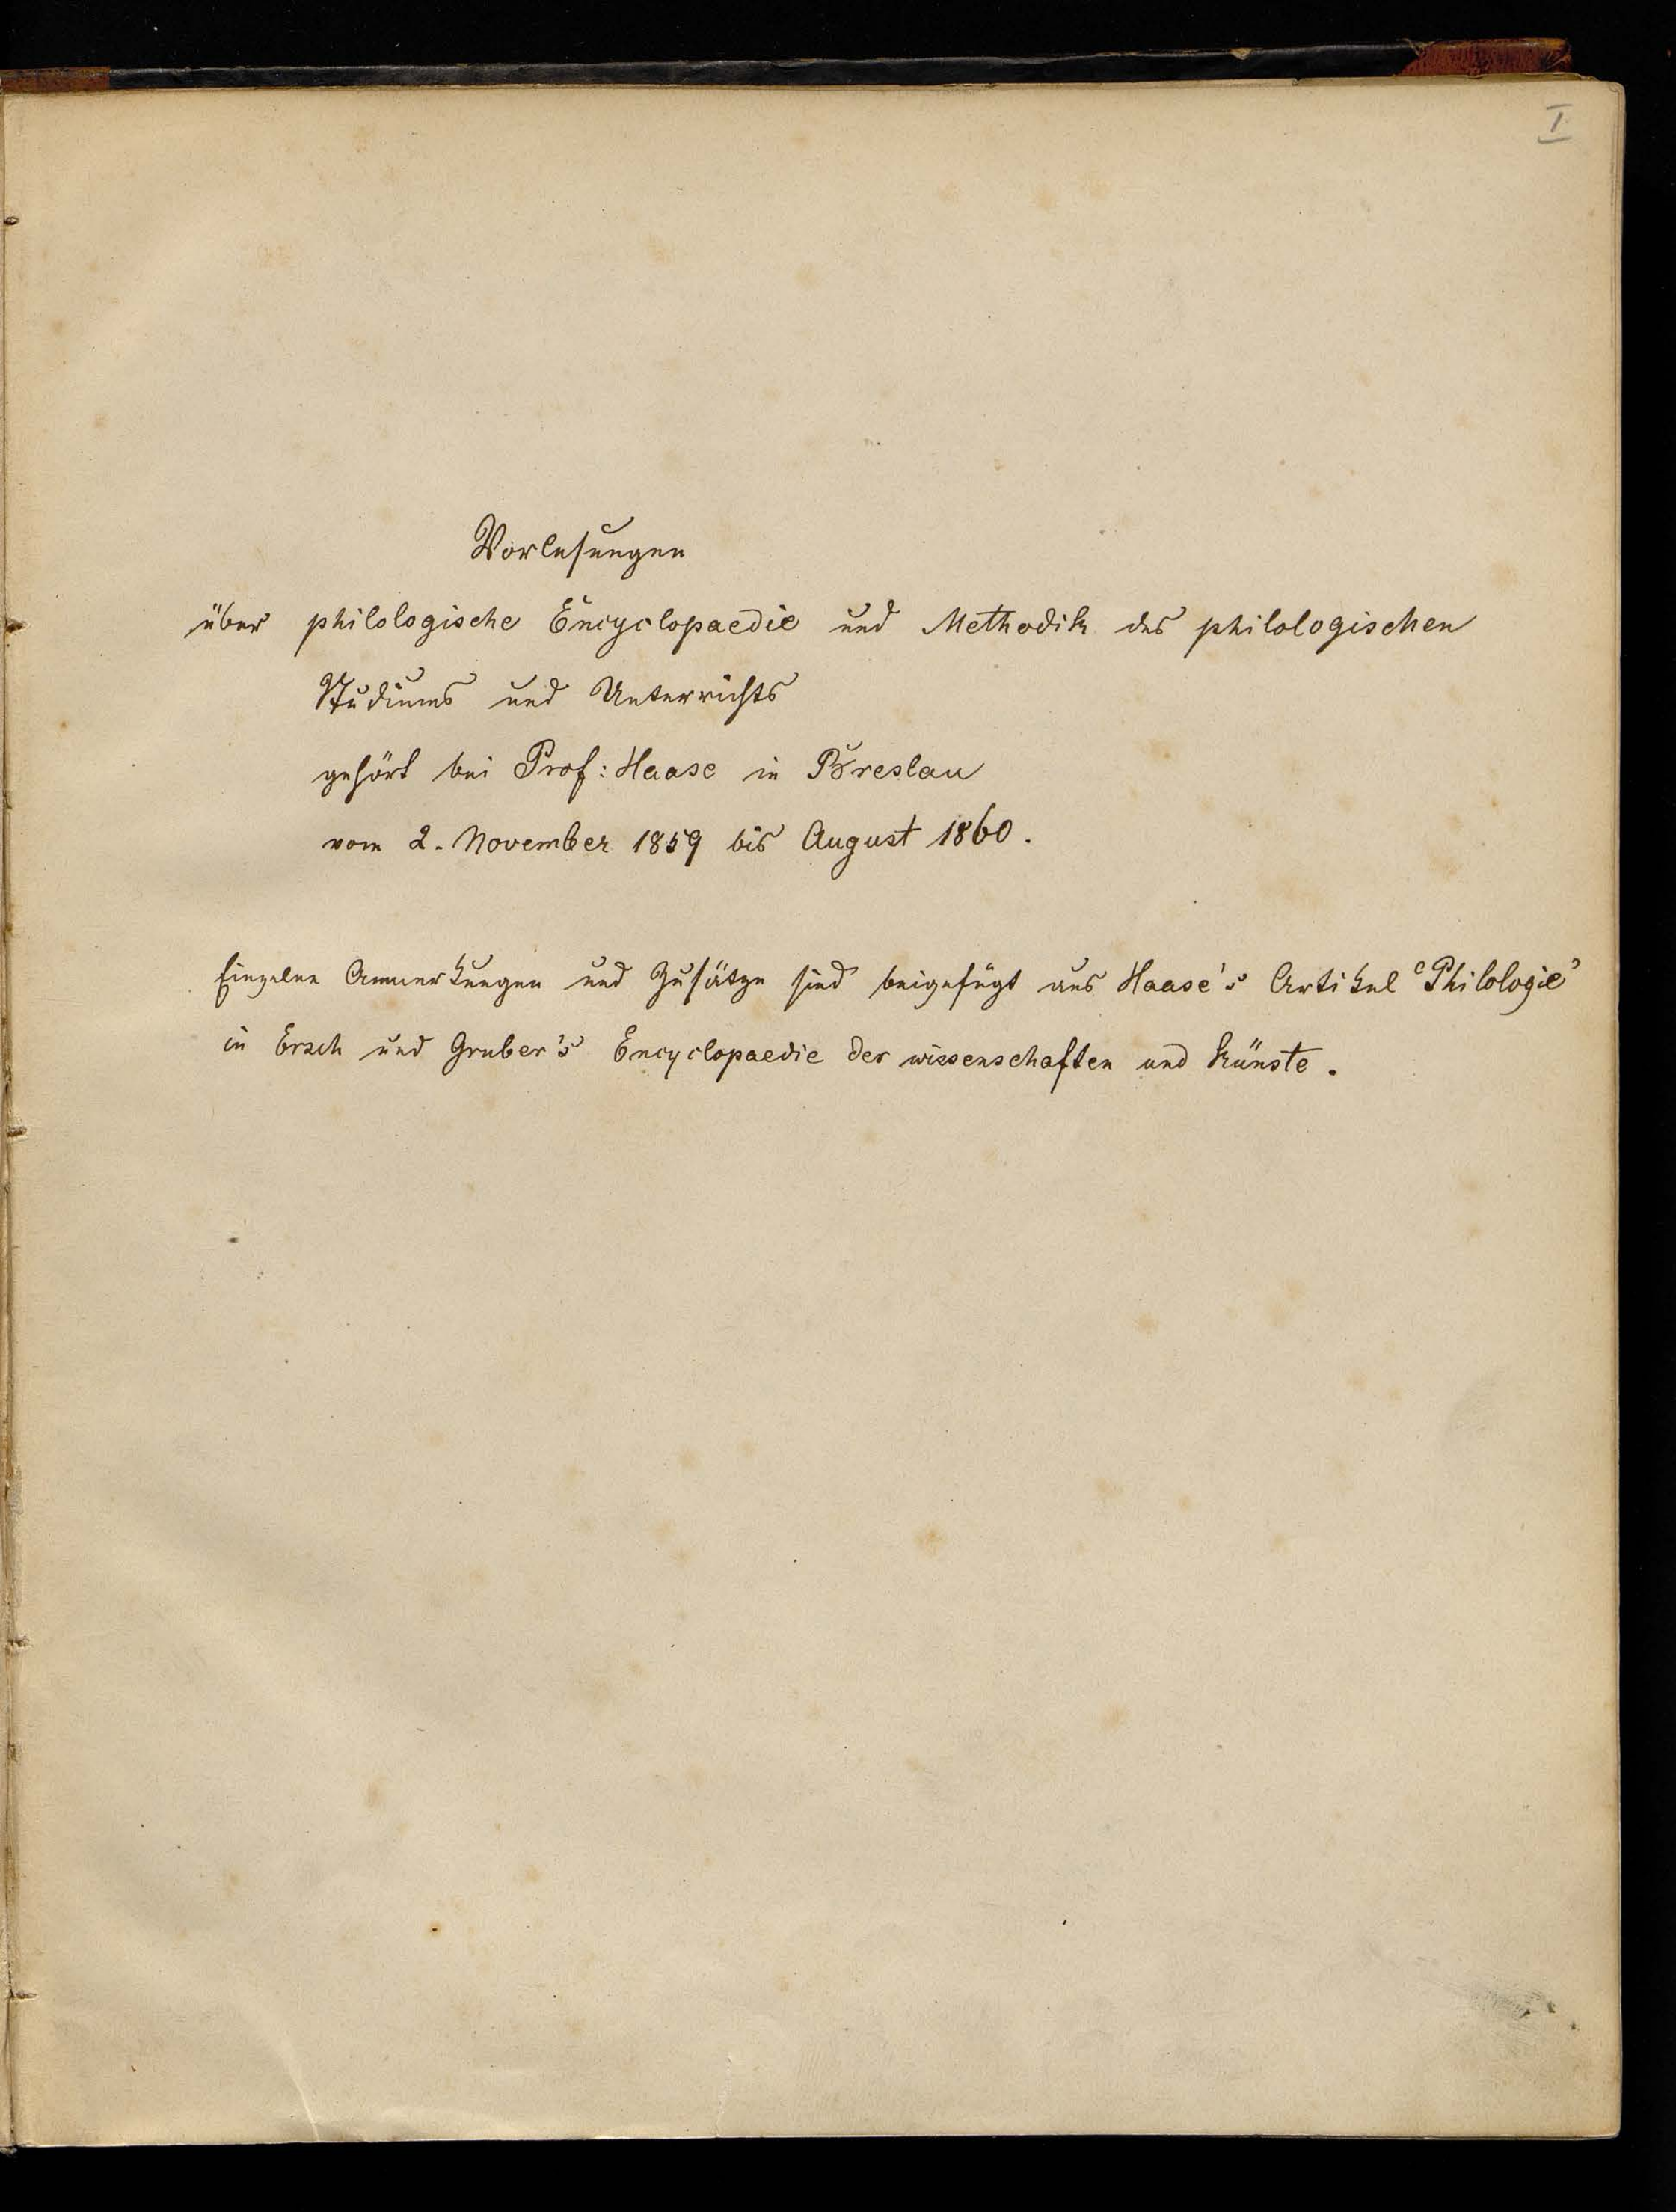 I
Vorlesungen
über philologische Encyclopaedie und Methodik des philologischen
Studiums und Unterrichts
gehört bei Prof: Haase in Breslau
vom 2. November 1859 bis August 1860.
Einzelne Anmerkungen und Zusätze sind beigefügt aus Haase's Artikel 'Philologie'
in Ersch und Gruber's Encyclopaedie der wissenschaften und Künste.